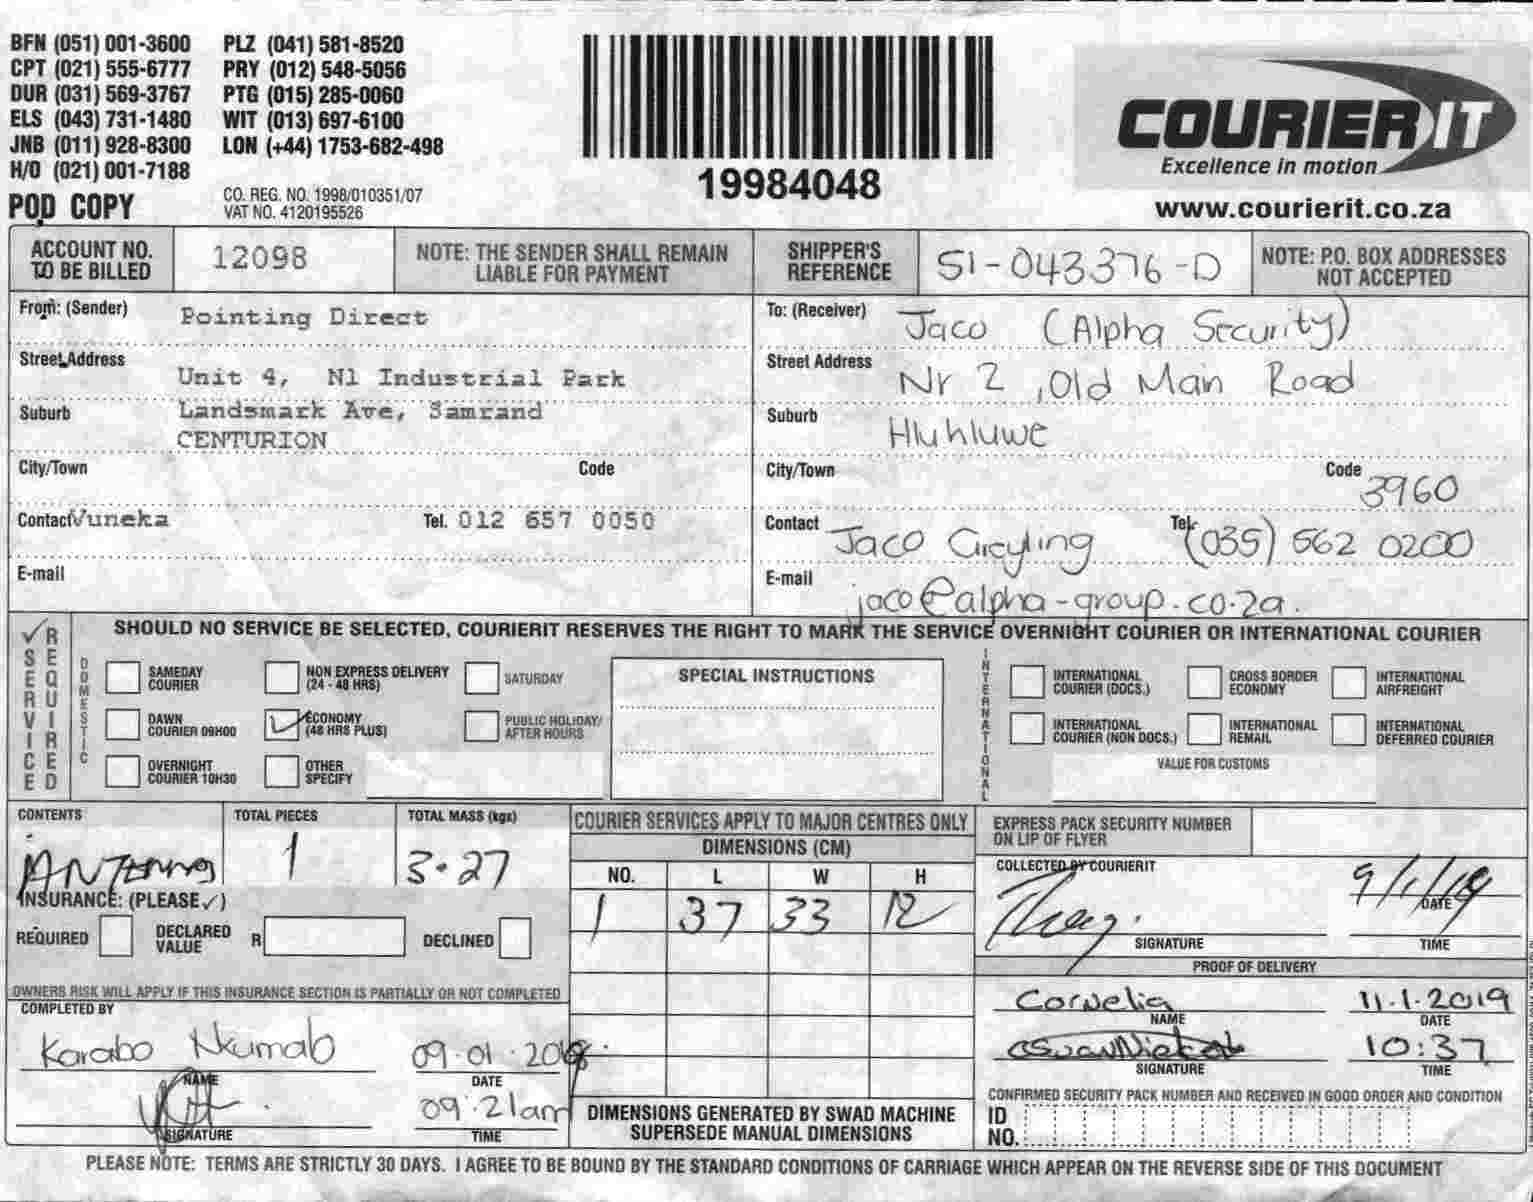 BFN (051) 001-3600 PLZ (041) 581-8520
CPT (021) 555-6777 PRY (012) 548-5056
DUR (031) 569-3767 PTG (015) 285-0060
ELS (043) 731-1480 WIT (013) 697-6100
JNB (011) 928-8300 LON (+44) 1753-682-498
H/O (021) 001-7188
POD COPY
CO. REG. NO. 1998/010351/07
VAT NO. 4120195526
19984048
COURIER IT
Excellence in motion
www.courierit.co.za
ACCOUNT NO. TO BE BILLED
12098
NOTE: THE SENDER SHALL REMAIN LIABLE FOR PAYMENT
SHIPPER'S REFERENCE
SI-043376-D
NOTE: P.O. BOX ADDRESSES NOT ACCEPTED
From: (Sender) Pointing Direct
Street Address Unit 4, N1 Industrial Park
Suburb Landsmark Ave, Samrand
CENTURION
City/Town Code
Contact Vuneka Tel. 012 657 0050
E-mail
To: (Receiver) Jaco (Alpha Security)
Street Address Nr 2, Old Main Road
Suburb Hluhluwe
City/Town Code 3960
Contact Jaco Greyling Tel. (035) 562 0200
E-mail jaco@alpha-group.co.za.
SERVICE REQUIRED
SHOULD NO SERVICE BE SELECTED, COURIERIT RESERVES THE RIGHT TO MARK THE SERVICE OVERNIGHT COURIER OR INTERNATIONAL COURIER
DOMESTIC
SAMEDAY COURIER
NON EXPRESS DELIVERY (24 - 48 HRS)
SATURDAY
DAWN COURIER 09H00
ECONOMY (48 HRS PLUS)
PUBLIC HOLIDAY/ AFTER HOURS
OVERNIGHT COURIER 10H30
OTHER SPECIFY
SPECIAL INSTRUCTIONS
INTERNATIONAL
INTERNATIONAL COURIER (DOCS.)
CROSS BORDER ECONOMY
INTERNATIONAL AIRFREIGHT
INTERNATIONAL COURIER (NON DOCS.)
INTERNATIONAL REMAIL
INTERNATIONAL DEFERRED COURIER
VALUE FOR CUSTOMS
CONTENTS
ANTENNAS
TOTAL PIECES
1
TOTAL MASS (kgs)
3.27
INSURANCE: (PLEASE ✓)
REQUIRED
DECLARED VALUE R
DECLINED
OWNERS RISK WILL APPLY IF THIS INSURANCE SECTION IS PARTIALLY OR NOT COMPLETED
COMPLETED BY
Karabo Nkumab 09.01.2018
NAME DATE
09:21am
SIGNATURE TIME
COURIER SERVICES APPLY TO MAJOR CENTRES ONLY
DIMENSIONS (CM)
NO. L W H
1 37 33 12
DIMENSIONS GENERATED BY SWAD MACHINE
SUPERSEDE MANUAL DIMENSIONS
EXPRESS PACK SECURITY NUMBER ON LIP OF FLYER
COLLECTED BY COURIERIT
9/1/19
DATE
SIGNATURE TIME
PROOF OF DELIVERY
Cornelia 11.1.2019
NAME DATE
10:37
SIGNATURE TIME
CONFIRMED SECURITY PACK NUMBER AND RECEIVED IN GOOD ORDER AND CONDITION
ID NO.
PLEASE NOTE: TERMS ARE STRICTLY 30 DAYS. I AGREE TO BE BOUND BY THE STANDARD CONDITIONS OF CARRIAGE WHICH APPEAR ON THE REVERSE SIDE OF THIS DOCUMENT